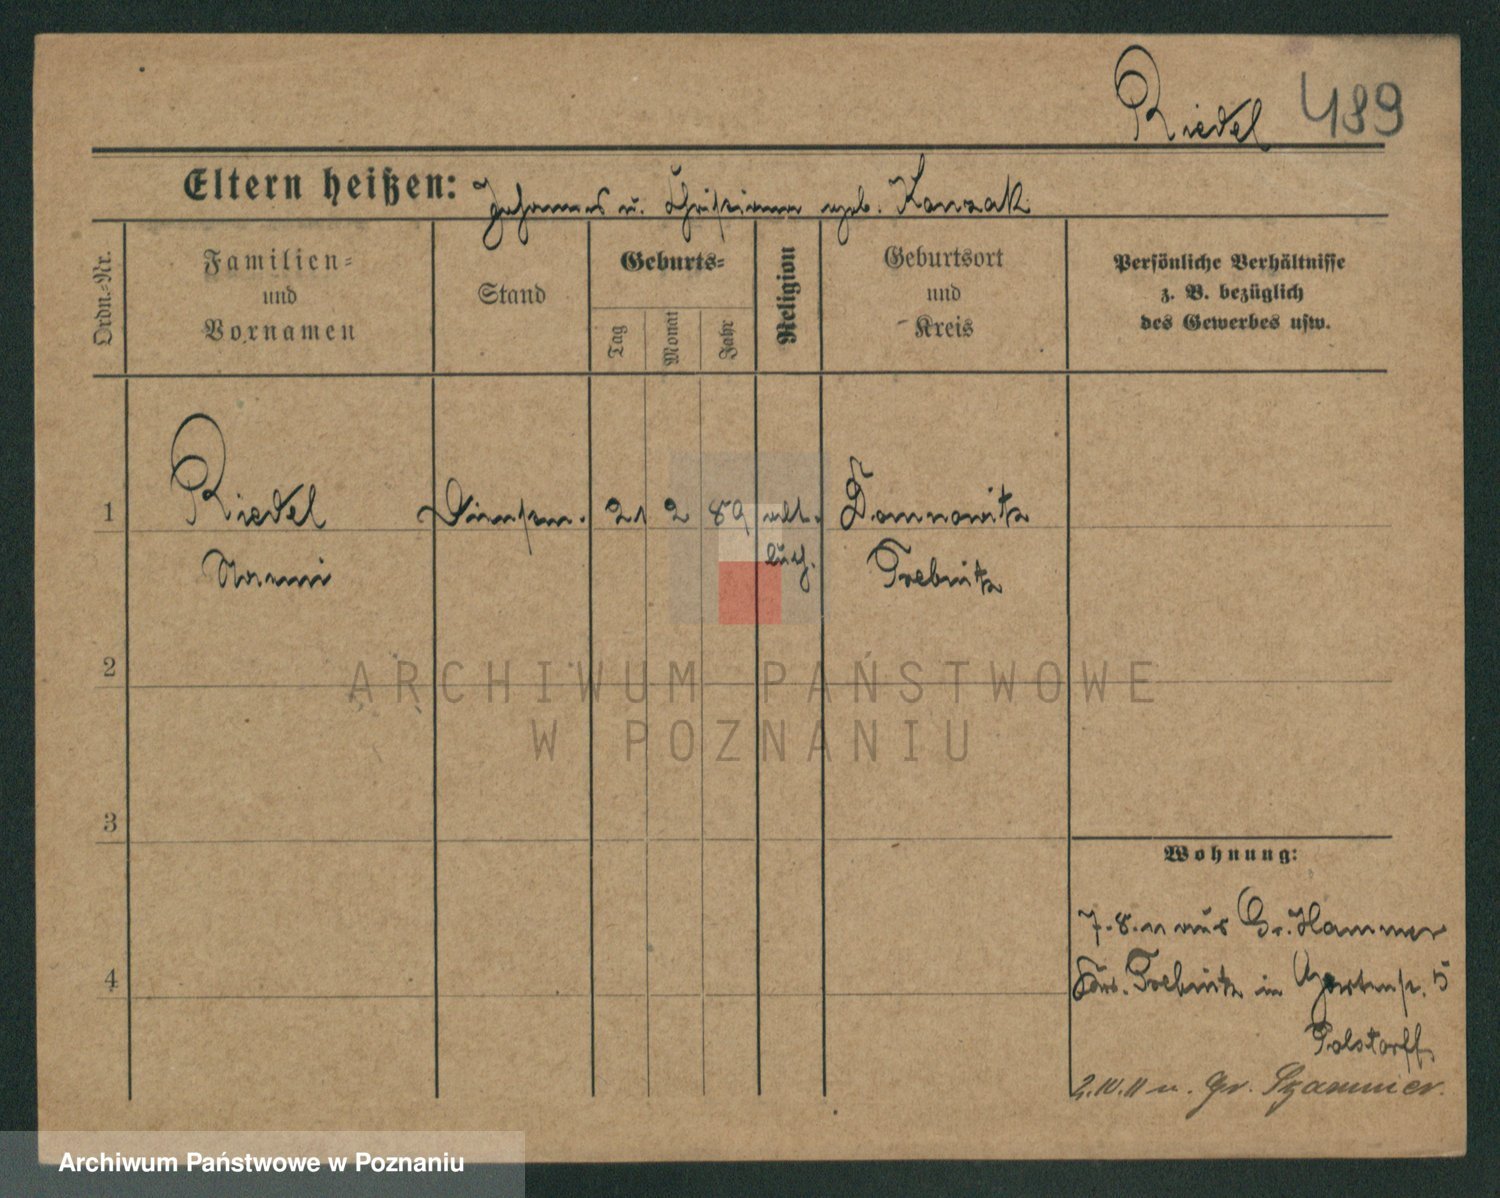 Riedel 489
Eltern heißen: Johannes u. Christiane geb. Kanzak
Ordn.-Nr.
Familien=
und
Vornamen
Stand
Geburts=
Tag
Monat
Jahr
Religion
Geburtsort
und
Kreis
Persönliche Verhältnisse
z. B. bezüglich
des Gewerbes usw.
1 Riedel 21 2 89 alt. Domnowitz
luth. Trebnitz
2
ARCHIWUM PAŃSTWOWE
W POZNANIU
3
Wohnung:
7.8.11 aus Gr. Hammer
4
Krs. Trebnitz in Gartenstr. 5
Polstorff
2.IV.11 n. Gr.
Archiwum Państwowe w Poznaniu